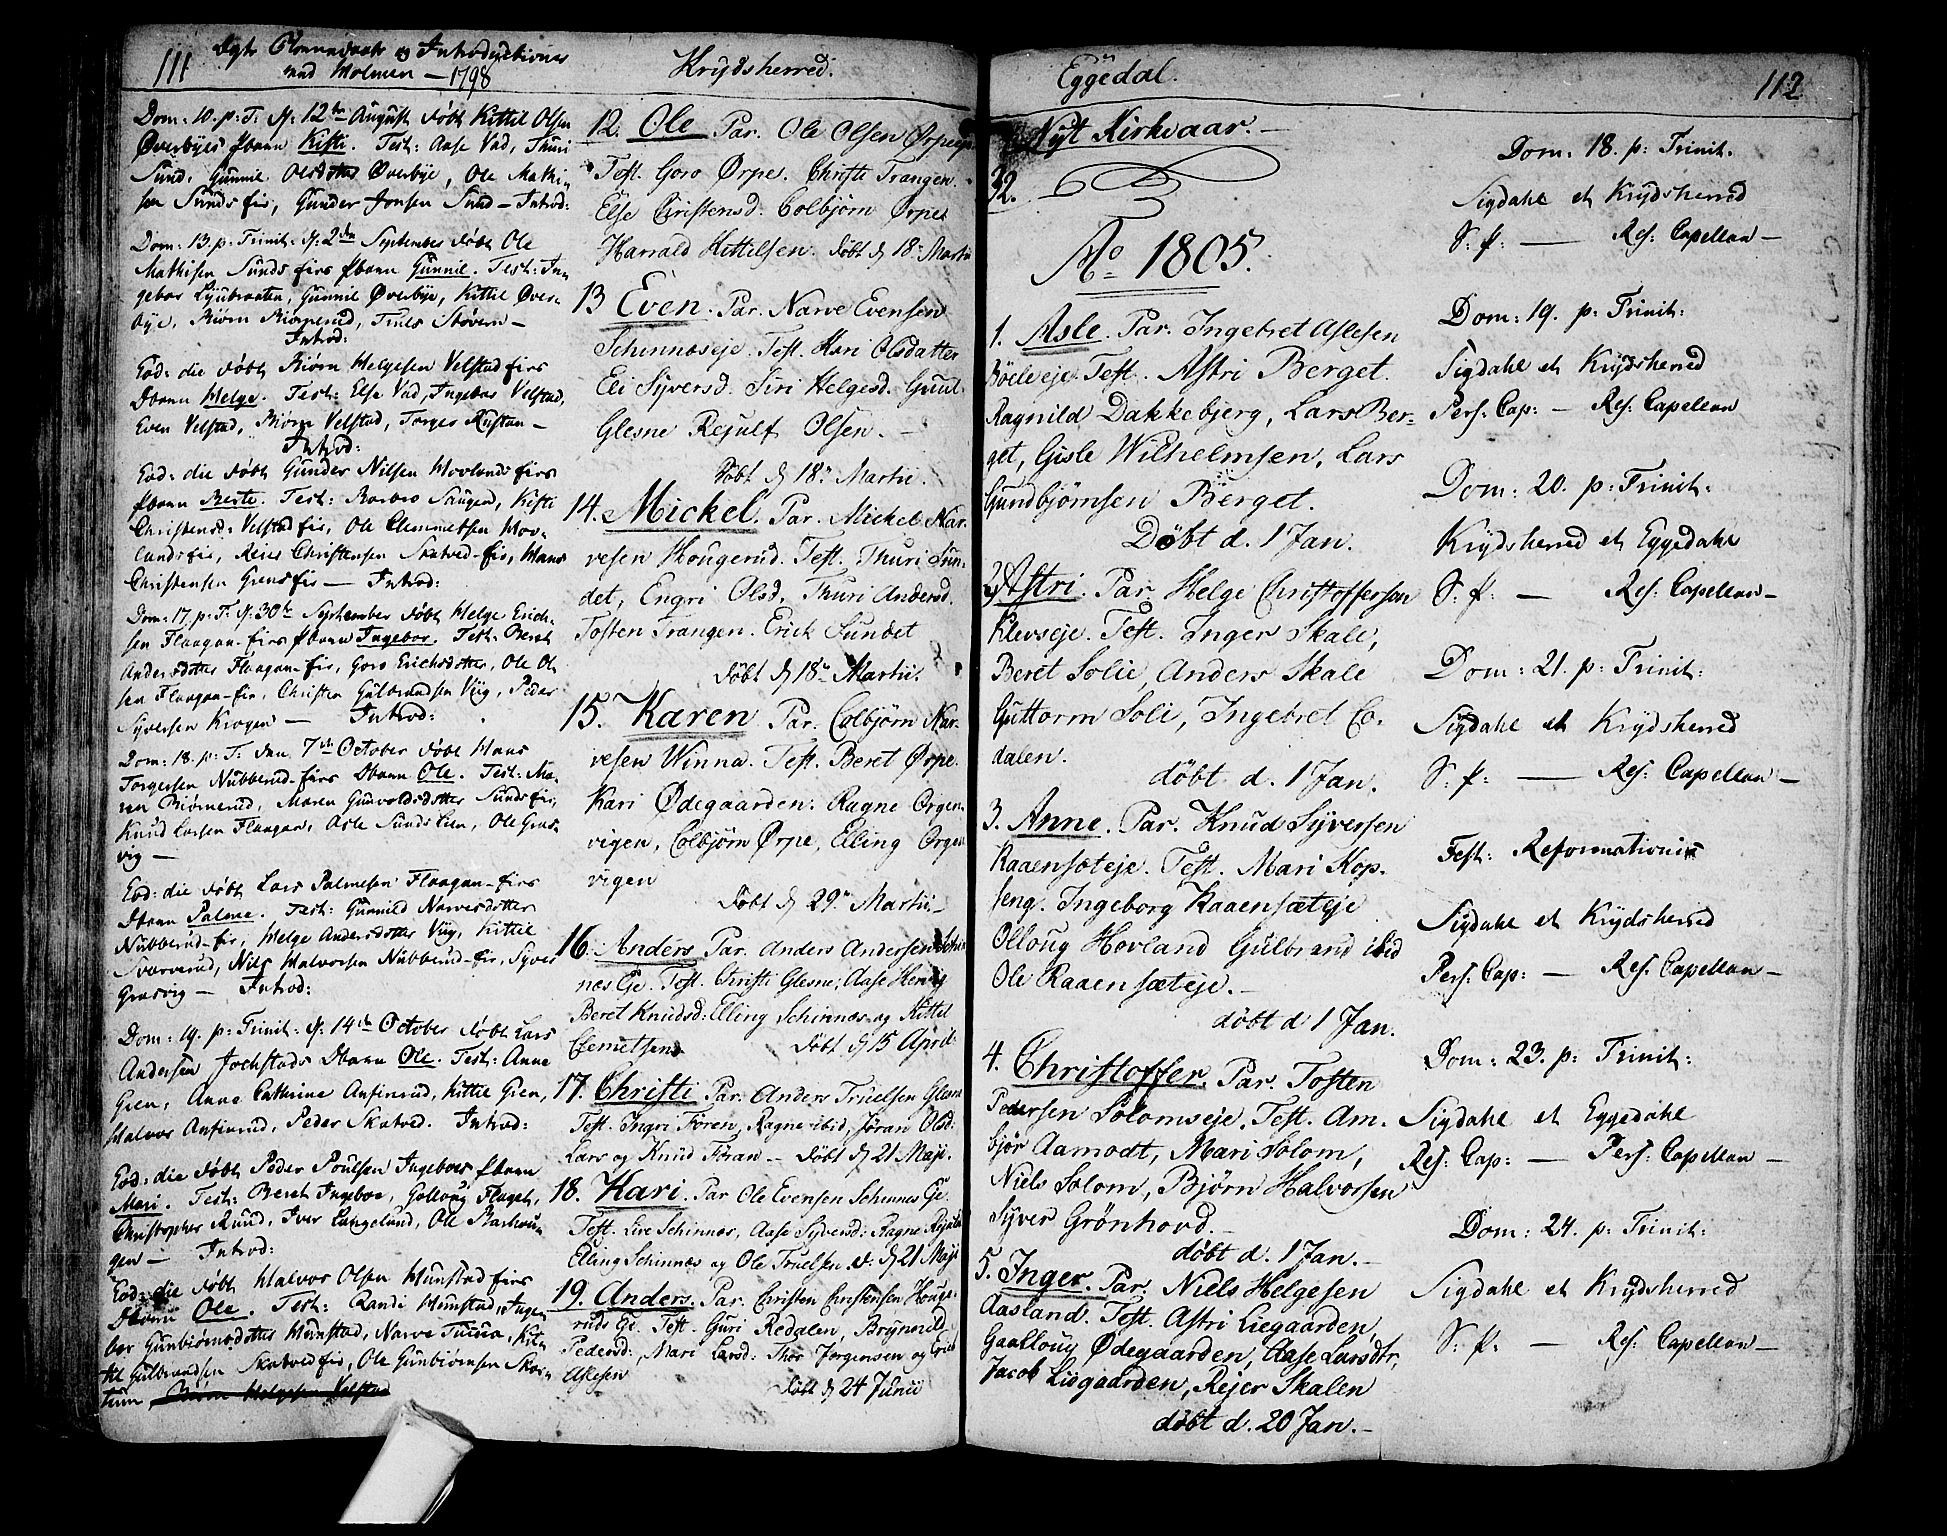 111
Dgtr Omnedaats og Introductiones
ved Holmen — 1798
Dom: 10. p: T. d: 12te August døbt Kittil Olsen
Øverbyes Pbarn Kisti. Test: Aase Vad, Thuri
Sund, Gunnil Olsdotter Øverbye, Ole Mathi-
sen Sunds fir, Gunder Jonsen Sund — Introd:
Dom: 13. p: Trinit. d: 2den September døbt Ole
Mathisen Sunds firs Pbarn Gunnil. Test: In-
gebor Ljubraaten, Gunnil Øverbye, Kittil Øver-
bye, Biørn Biørnerud, Truls Støvern —
Introd:
Eod: die døbt Biørn Helgesen Velstad firs
Dbarn Helge. Test: Else Vad, Ingebor Velstad,
Even Velstad, Biørn Velstad, Torger Rustan —
Introd:
Eod: die døbt Gunder Nilsen Hovlands firs
Pbarn Berte. Test: Barbro Saugen, Kisti
Christensd: Velstad fir, Ole Clemmetsen Hov-
lands fir, Reier Christensen Skatved-fir, Hans
Christensen Grens fir — Introd:
Dom: 17. p: T. d: 30te September døbt Helge Erich-
sen Flaagan-firs Pbarn Ingebor. Test: Beret
Andersdotter Flaagan-fir, Goro Erichsdotter, Ole Ol-
sen Flaagan-fir, Christen Gulbrandsen Viig, Peder
Syversen Krogen — Introd:
Dom: 18. p: T: den 7de October døbt Hans
Torgersen Nubberud-firs Dbarn Ole. Test: Ma-
ren Biørnerud, Maren Gunvoldsdotter Sunds fir,
Knud Larsen Flaagan, Asle Sunds Lien, Ole Gras-
vig —
Eod: die døbt Lars Palmesen Flaagan-firs
Dbarn Palme. Test: Gunnild Narvesdotter
Nubberud-fir, Helge Andersdotter Viig, Kittil
Sværverud, Nils Halvorsen Nubberud-fir, Syver
Grasvig — Introd:
Dom: 19. p: Trinit: d: 14de October døbt Lars
Andersen Jochstads Dbarn Ole. Test: Anne
Gren, Anne Cathrine Anfinrud, Kittil Gren,
Halvor Anfinrud, Peder Skatved. Introd:
Eod: die døbt Peder Poulsen Ingeboes Pbarn
Mari. Test: Beret Ingeboe, Golloug Flaget,
Christopher Rund, Iver Langelund, Ole
gen — Introd:
Eod: die døbt Halvor Olsen Hunstad firs
Dbarn Ole. Test: Randi Hunstad, Inge-
bor Gunbiørnsdotter Hunstad, Narve, Kit-
til Gulbrandsen Skatved fir, Ole Gunbiørnsen Skar-
tum, Biørn Helgesen Velstad
Krydsherred.
12. Ole Par. Ole Olsen Ørpeeje
Test. Goro Ørpe. Christi Trangen.
Else Christensd. Colbjørn Ørpe
Harrald Kittilsen. døbt d 18 Martii
13 Even. Par. Narve Evensen
Schinnæseje. Test. Kari Olsdatter
Eli Syversd. Siri Helgesd. Guul
Glesne Rejulf Olsen. —
døbt d 18de Martii.
14. Mickel. Par. Mickel Nar-
vesen Hougerud. Test. Thuri Sun-
det, Engri Olsd. Thuri Andersd.
Tosten Trangen. Erick Sundet
døbt d 18de Martii.
15. Karen Par. Colbjørn Nar-
vesen Winna. Test. Beret Ørpe.
Kari Ødegaarden. Ragne Orgen-
vigen, Colbjørn Ørpe, Elling Orgen-
vigen
døbt d 29de Martii —
16. Anders Par. Anders Andersen Schin-
nes Eje. Test. Christi Glesne, Aase Hennig
Beret Knudsd: Elling Schinnæs og Kittel
Clemetsen døbt d 15 April:
17. Christi Par: Anders Truelsen Glesne
Test. Ingri Foren, Ragne ibid, Jøran Olsd:
Lars og Knud Foran — døbt d 21 Maji.
18. Kari. Par Ole Evensen Schinnes Eje.
Test. Live Schinnæs, Aase Syversd: Ragne
Elling Schinnæs og Ole Truelsen d: d 21 Maji
19. Anders. Par. Christen Christensen Houge-
ruds Eje. Test. Guri Redalen, Brynnild
Pedersd:, Mari Larsd: Thor Jørgensen og Erich
Aslesen
døbt d 24 Junii
Eggedal.
112
Nyt Kirkeaar. —
32.
Ao 1805.
1. Asle. Par. Ingebret Aslesen
Böeleeje. Test. Astri Berget.
Ragnild Dakkebjerg, Lars Ber-
get, Gisle Wilhelmsen, Lars
Gundbjörnsen Berget.
Döbt d. 1 Jan.
2. Astri. Par. Helge Christoffersen
Klevseje. Test. Inger Skale,
Beret Solie, Anders Skale
Guttorm Soli, Ingebret Co-
dalen.
döbt d. 1 Jan.
3. Anne. Par. Knud Syversen
Raaensæteje. Test. Mari Kop-
seng. Ingeborg Raaensæteje
Olloug Hovland Gulbrand ibid
Ole Raaensæteje. —
döbt d 1 Jan.
4. Christoffer. Par. Tosten
Pedersen Solomseje. Test. Am-
bjør Aamodt, Mari Solom,
Niels Solom, Bjørn Halvorsen
Syver Grönhovd. —
döbt d. 1 Jan. —
5. Inger. Par: Niels Helgesen
Aasland. Test. Astri Liegaarden,
Gaalloug Ødegaarden, Aase Larsdtr,
Jacob Liegaarden, Rejer Skalen
döbt d. 20 Jan. —
Dom: 18. p: Trinit.
Sigdahl et Krydsherred
S: p: — Res: Capellan —
Dom: 19. p: Trinit:
Sigdahl et Krydsherred
Pers: Cap: — Res: Capellan
Dom: 20. p: Trinit:
Krydsherred et Eggedahl
S: p: — Res: Capellan —
Dom: 21. p: Trinit:
Sigdahl et Krydsherred
S: p: — Res: Capellan —
Fest: Reformationis
Sigdahl et Krydsherred
Pers: Cap: — Res: Capellan —
Dom: 23. p: Trinit:
Sigdahl et Eggedahl
Res: Cap: — Pers: Capellan —
Dom: 24. p: Trinit:
Sigdahl et Krydsherred
S: p: — Res: Capellan —